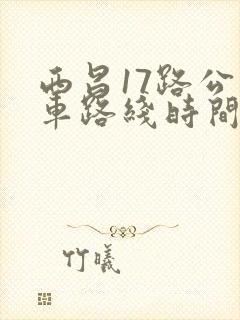 西昌17路公
車路綫時間
竹曦